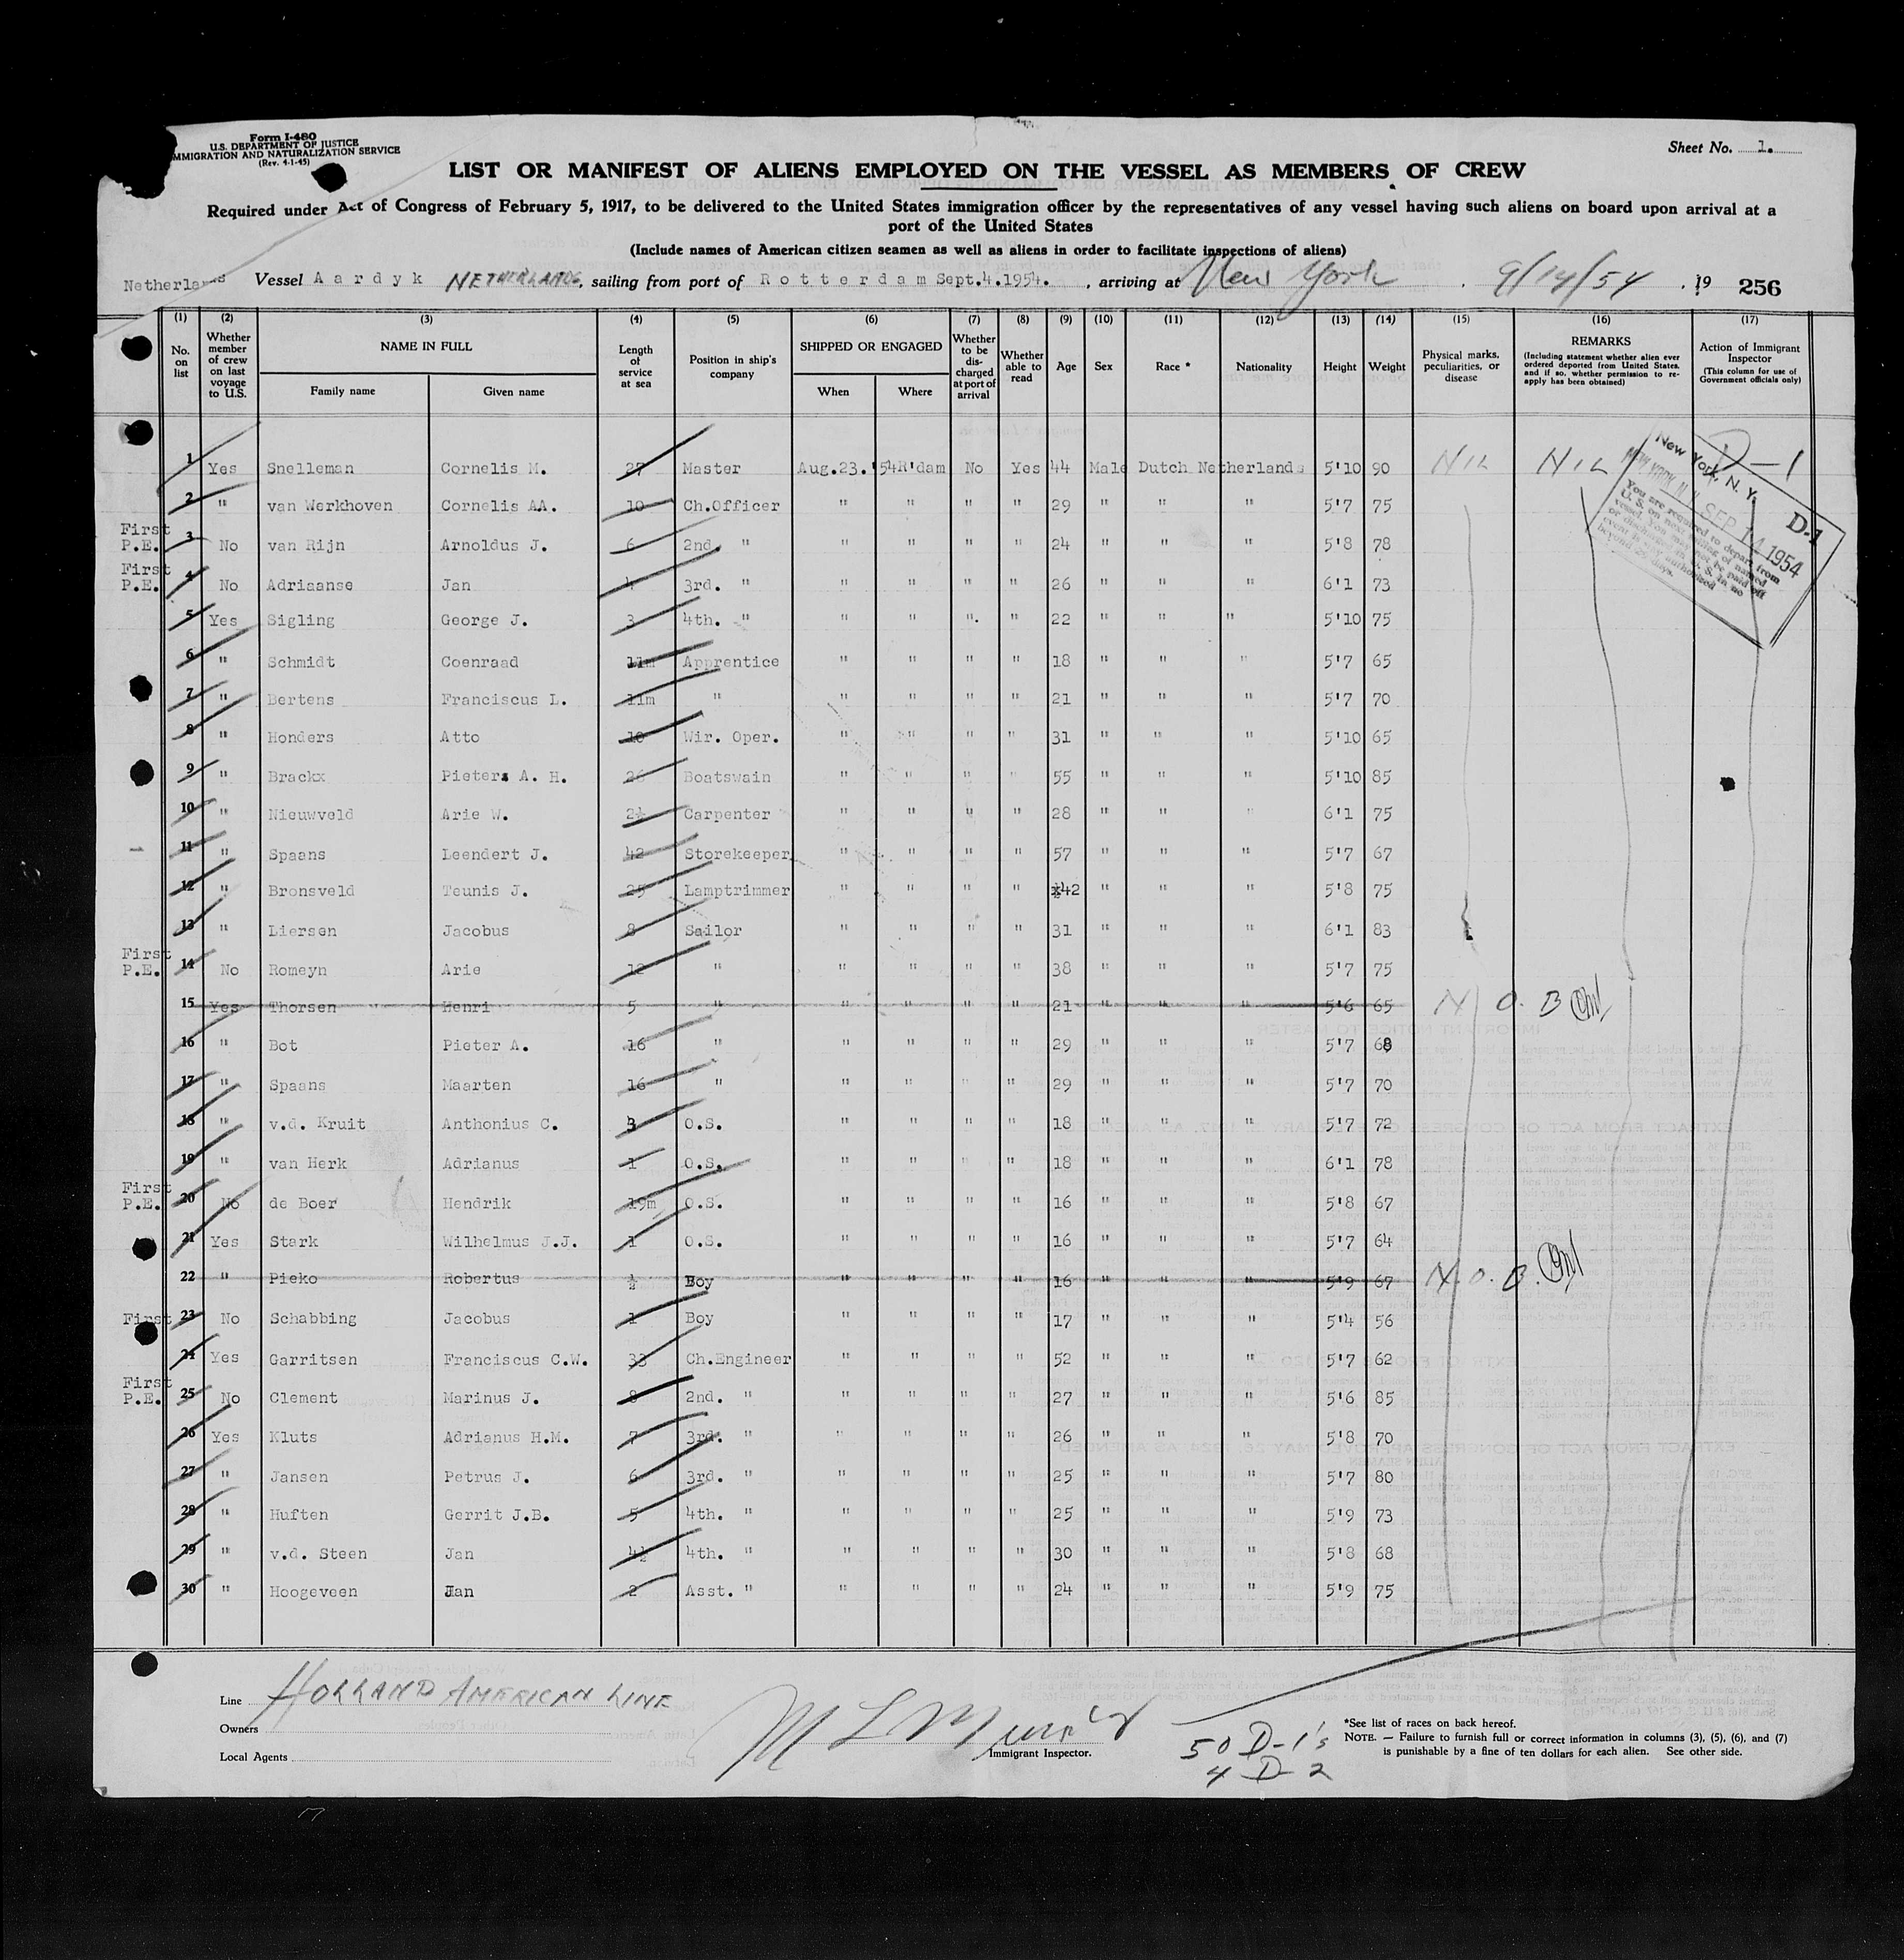 Form I-480
U.S. DEPARTMENT OF JUSTICE
IMMIGRATION AND NATURALIZATION SERVICE
(Rev. 4-1-45)
Sheet No. 1.
LIST OR MANIFEST OF ALIENS EMPLOYED ON THE VESSEL AS MEMBERS OF CREW
Required under Act of Congress of February 5, 1917, to be delivered to the United States immigration officer by the representatives of any vessel having such aliens on board upon arrival at a
port of the United States
(Include names of American citizen seamen as well as aliens in order to facilitate inspections of aliens)
Netherlands Vessel Aardyk NETHERLANDS, sailing from port of Rotterdam Sept.4.1954. , arriving at New York . 9/14/54 , 19 256
(1) (2) (3) (4) (5) (6) (7) (8) (9) (10) (11) (12) (13) (14) (15) (16) (17)
No. on list
Whether member of crew on last voyage to U.S.
NAME IN FULL
Family name Given name
Length of service at sea
Position in ship's company
SHIPPED OR ENGAGED
When Where
Whether to be discharged at port of arrival
Whether able to read
Age Sex Race * Nationality Height Weight
Physical marks, peculiarities, or disease
REMARKS
(Including statement whether alien ever ordered deported from United States, and if so, whether permission to re-apply has been obtained)
Action of Immigrant Inspector
(This column for use of Government officials only)
1 Yes Snelleman Cornelis M. 27 Master Aug.23.'54 R'dam No Yes 44 Male Dutch Netherlands 5'10 90 NIL NIL D-1
2 " van Werkhoven Cornelis AA. 10 Ch.Officer " " " " 29 " " " 5'7 75
First P.E. 3 No van Rijn Arnoldus J. 6 2nd. " " " " " 24 " " " 5'8 78
First P.E. 4 No Adriaanse Jan 4 3rd. " " " " " 26 " " " 6'1 73
5 Yes Sigling George J. 3 4th. " " " " " 22 " " " 5'10 75
6 " Schmidt Coenraad 11m Apprentice " " " " 18 " " " 5'7 65
7 " Bertens Franciscus L. 11m " " " " " 21 " " " 5'7 70
8 " Honders Atto 10 Wir. Oper. " " " " 31 " " " 5'10 65
9 " Brackx Pieters A. H. 26 Boatswain " " " " 55 " " " 5'10 85
10 " Nieuwveld Arie W. 2½ Carpenter " " " " 28 " " " 6'1 75
11 " Spaans Leendert J. 42 Storekeeper " " " " 57 " " " 5'7 67
12 " Bronsveld Teunis J. 25 Lamptrimmer " " " " 42 " " " 5'8 75
13 " Liersen Jacobus 8 Sailor " " " " 31 " " " 6'1 83
First P.E. 14 No Romeyn Arie 12 " " " " " 38 " " " 5'7 75
15 Yes Thorsen Henri 5 " " " " " 21 " " " 5'6 65 N.O.B
16 " Bot Pieter A. 16 " " " " " 29 " " " 5'7 68
17 " Spaans Maarten 16 " " " " " 29 " " " 5'7 70
18 " v.d. Kruit Anthonius C. 3 O.S. " " " " 18 " " " 5'7 72
19 " van Herk Adrianus 1 O.S. " " " " 18 " " " 6'1 78
First P.E. 20 No de Boer Hendrik 19m O.S. " " " " 16 " " " 5'8 67
21 Yes Stark Wilhelmus J.J. 1 O.S. " " " " 16 " " " 5'7 64
22 " Pieko Robertus ½ Boy " " " " 16 " " " 5'9 67 N.O.B.
First 23 No Schabbing Jacobus 1 Boy " " " " 17 " " " 5'4 56
24 Yes Garritsen Franciscus C.W. 33 Ch.Engineer " " " " 52 " " " 5'7 62
First P.E. 25 No Clement Marinus J. 8 2nd. " " " " " 27 " " " 5'6 85
26 Yes Kluts Adrianus H.M. 7 3rd. " " " " " 26 " " " 5'8 70
27 " Jansen Petrus J. 6 3rd. " " " " " 25 " " " 5'7 80
28 " Huften Gerrit J.B. 5 4th. " " " " " 25 " " " 5'9 73
29 " v.d. Steen Jan 4½ 4th. " " " " " 30 " " " 5'8 68
30 " Hoogeveen Jan 2 Asst. " " " " " 24 " " " 5'9 75
New York, N. Y. D-1
SEP 14 1954
You are required to depart from
Line HOLLAND AMERICAN LINE
Owners
Local Agents
Immigrant Inspector.
50 D-1's
4 D-2
*See list of races on back hereof.
NOTE. — Failure to furnish full or correct information in columns (3), (5), (6), and (7)
is punishable by a fine of ten dollars for each alien. See other side.